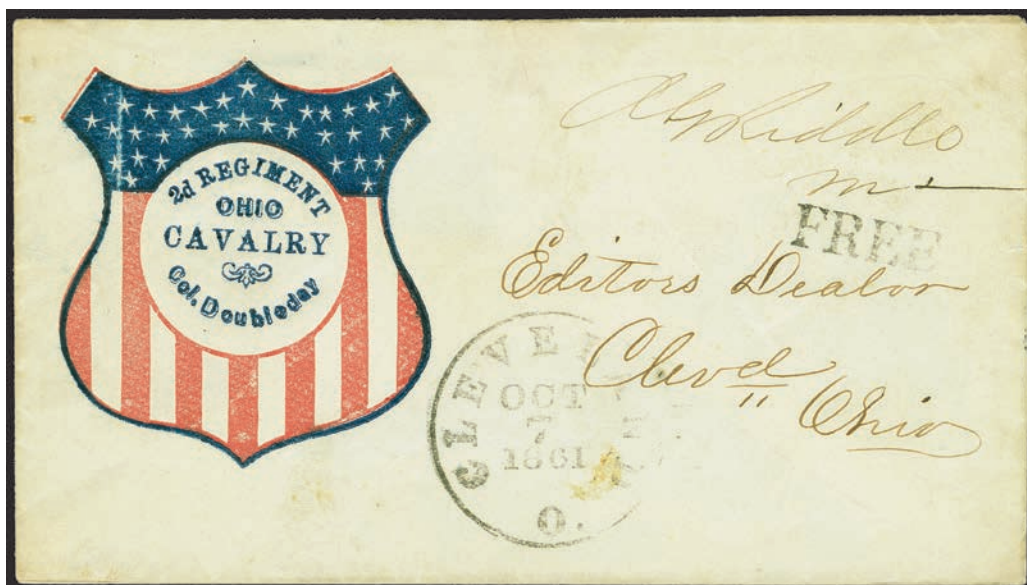 2d REGIMENT
OHIO
CAVALRY
Col. Doubleday
A G Riddle
M C
FREE
Editors Dealer
Cleved
Ohio
CLEVE
OCT
7
1861
O.